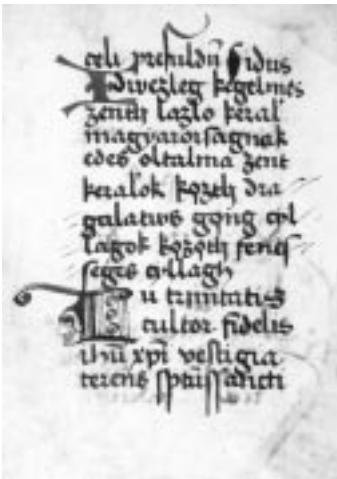 celi presidiū Sidus
Idwezleg kegelmes
zenth lazlo kerāl
magyarorsagnak
edes oltalma zent
keralok kozth dra
galatus gong cyl
lagok kozoth fenes
seges cyllagh
Tu trinitatis
cultor fidelis
ihū xpī vestigia
terens sptūs sancti